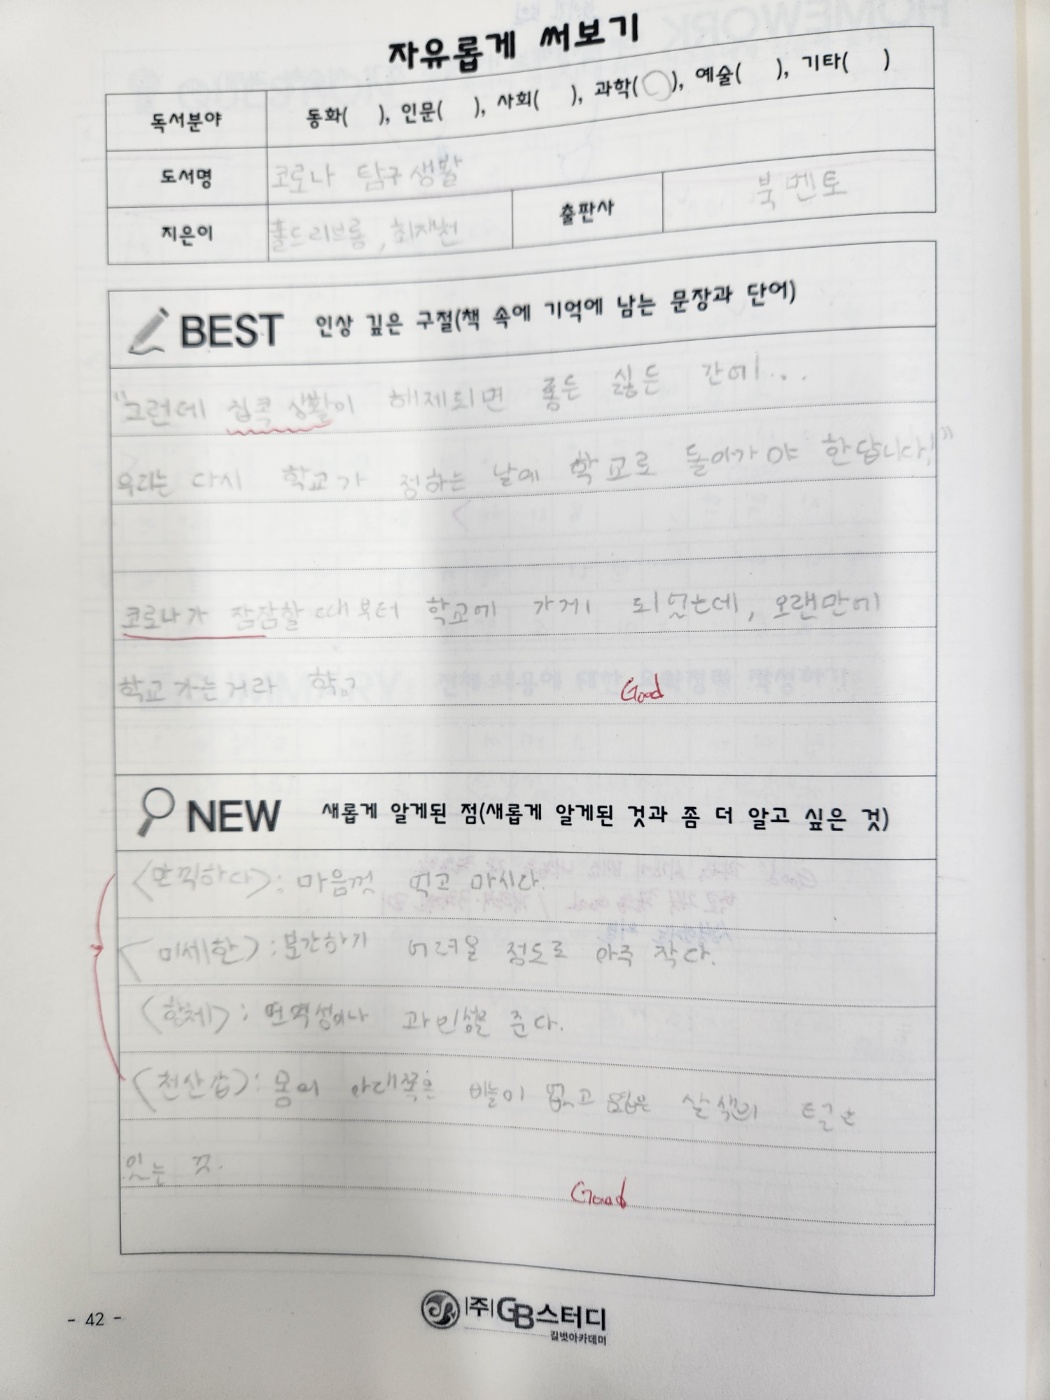 자유롭게 써보기
독서분야 동화( ), 인문( ), 사회( ), 과학(○), 예술( ), 기타( )
도서명 코로나 탐구 생활
지은이 홀드리브롬, 최재천 출판사 북멘토
BEST 인상 깊은 구절(책 속에 기억에 남는 문장과 단어)
"그런데 집콕 생활이 해제되면 좋든 싫든 간에...
우리는 다시 학교가 정하는 날에 학교로 돌아가야 한답니다!"
코로나가 잠잠할 때부터 학교에 가게 되었는데, 오랜만에
학교 가는거라
Good
NEW 새롭게 알게된 점(새롭게 알게된 것과 좀 더 알고 싶은 것)
<만끽하다>: 마음껏 먹고 마시다.
<미세한>: 분간하기 어려울 정도로 아주 작다.
<항체>: 면역성이나 과민성을 준다.
<천산갑>: 몸의 아래쪽은 비늘이 없고 옅은 살색의 털만
있는 것.
Good
- 42 -
(주)GB스터디
길벗아카데미